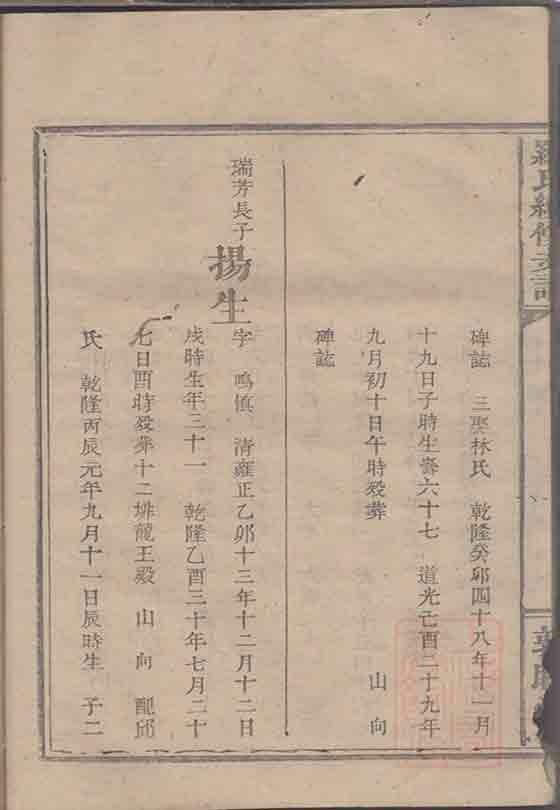 羅氏續修支譜
碑誌　三娶林氏　乾隆癸卯四十八年十一月
十九日子時生壽六十七　道光己酉二十九年
九月初十日午時歿葬　　山　向
碑誌
瑞芳長子
揚生
字　鳴慎　清雍正乙卯十三年十二月十二日
戌時生年三十一　乾隆乙酉三十年七月二十
七日酉時歿葬十二排龍王殿　山　向　配邱
氏　乾隆丙辰元年九月十一日辰時生　子二